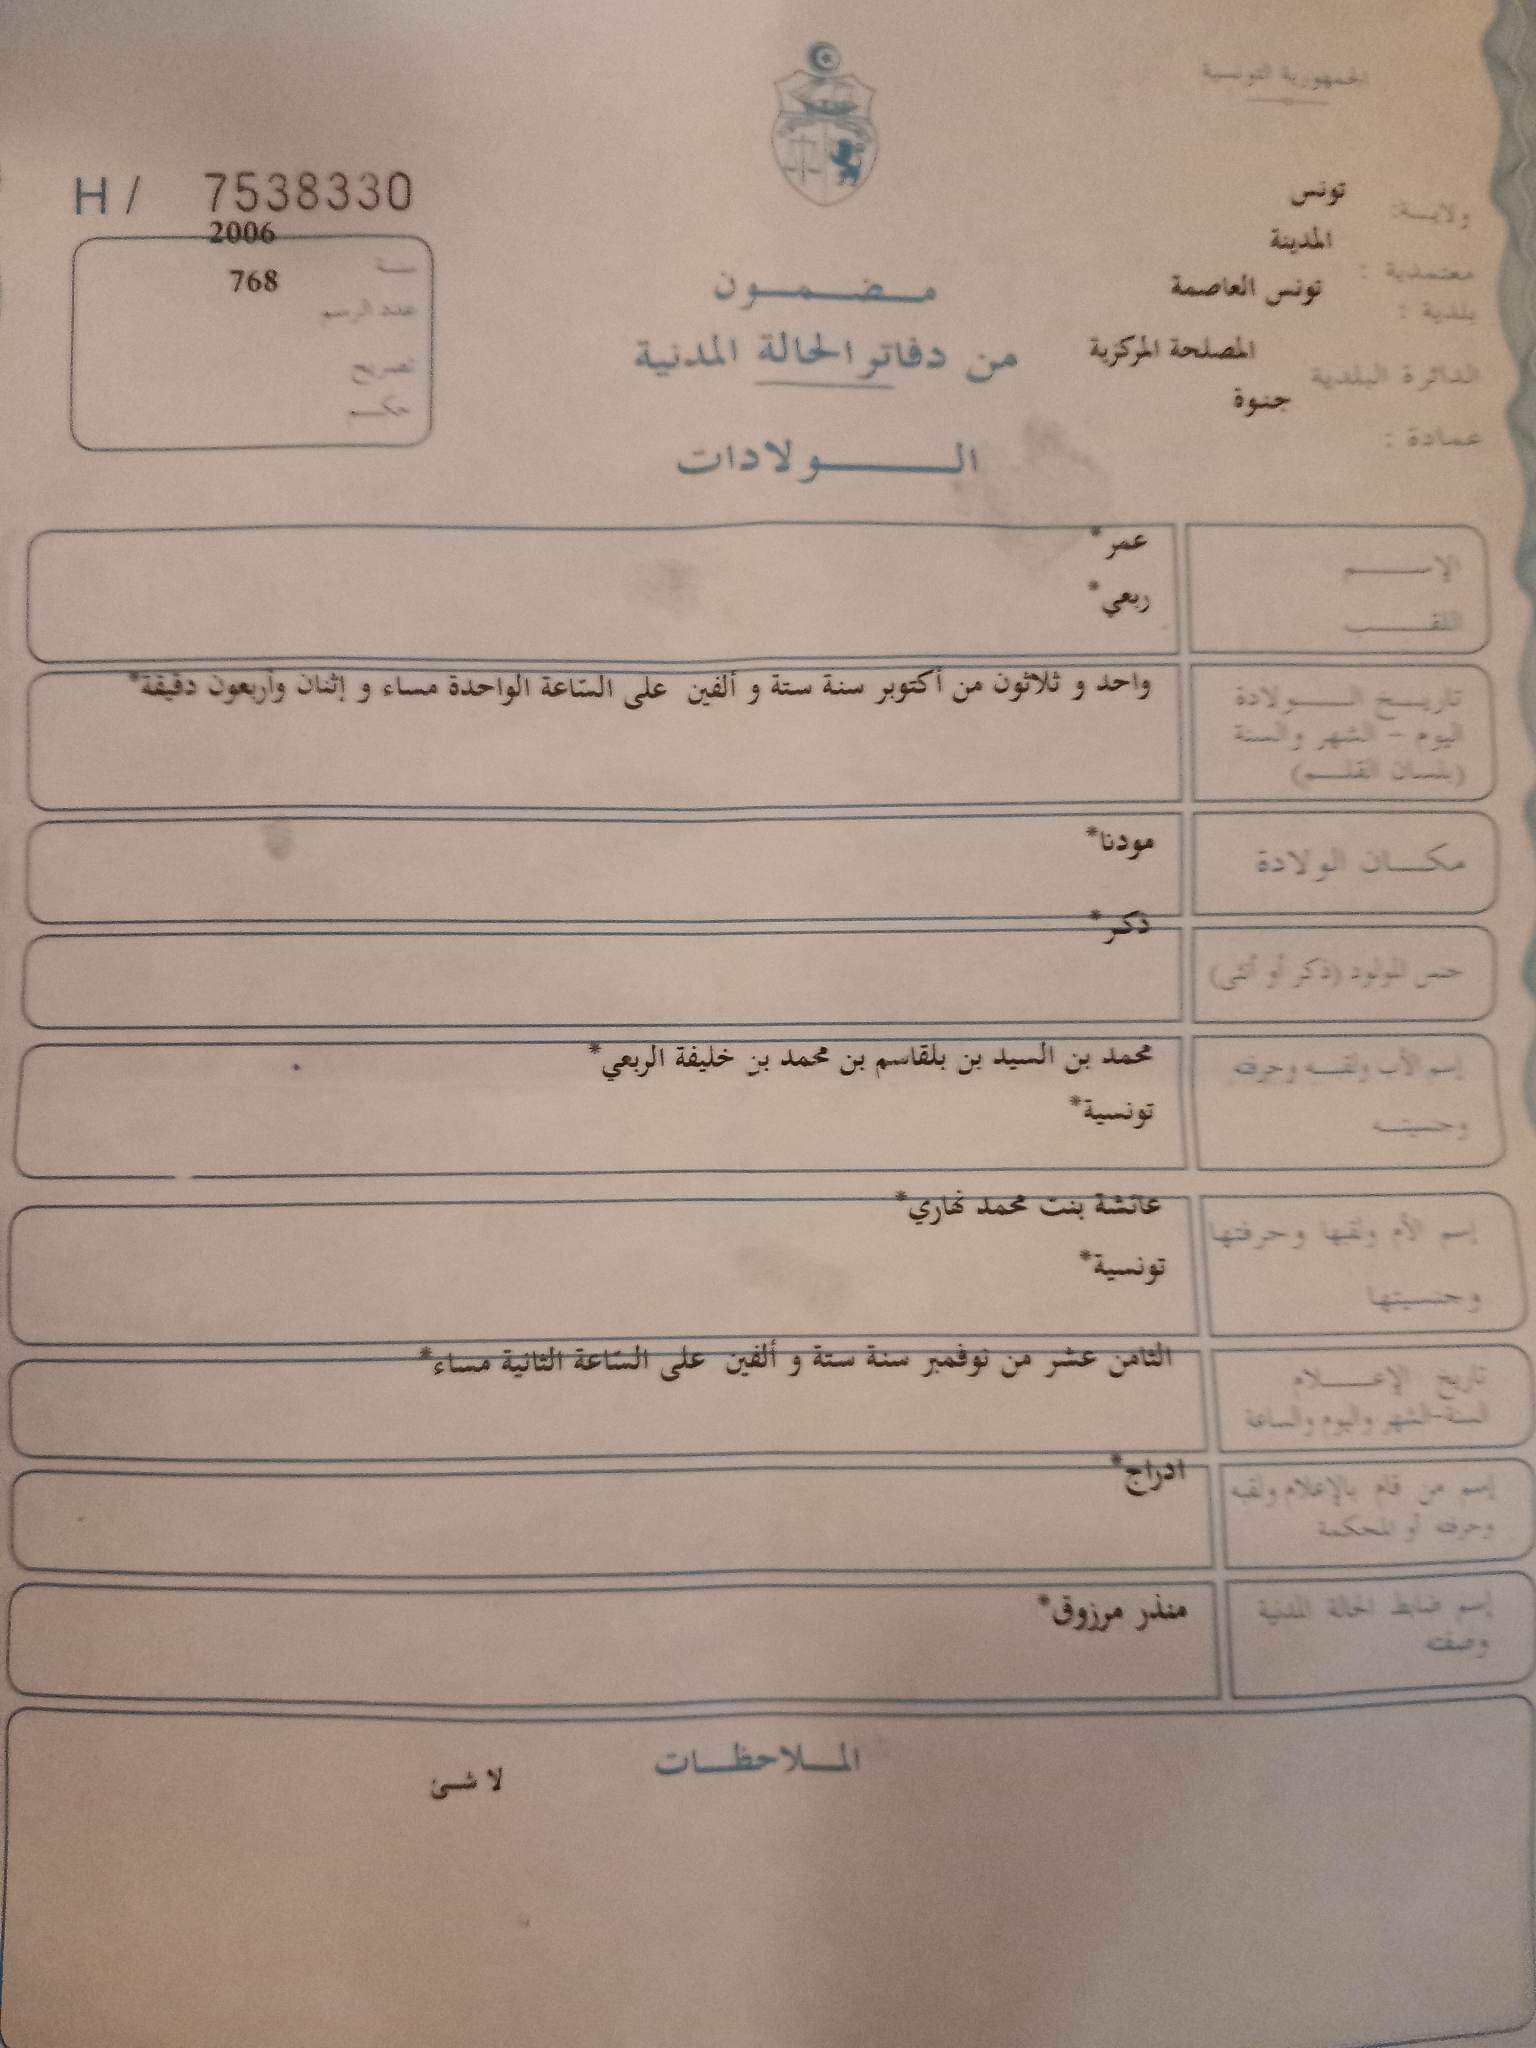 الجمهورية التونسية
ولايـة: تونس
معتمدية : المدينة
بلدية : تونس العاصمة
الدائرة البلدية المصلحة المركزية
عمادة : جنوة
H / 7538330
سنة 2006
عدد الرسم 768
تصريح
حكـم
مـضـمـون
من دفاتر الحالة المدنية
الـولادات
الإسـم عمر*
اللقـب ربعي*
تاريـخ الـولادة واحد و ثلاثون من أكتوبر سنة ستة و ألفين على السّاعة الواحدة مساء و إثنان وأربعون دقيقة*
اليوم – الشهر والسنة
(بلسان القلـم)
مكـان الولادة مودنا*
جنس المولود (ذكر أو أنثى) ذكر*
إسم الأب ولقبـه وحرفته محمد بن السيد بن بلقاسم بن محمد بن خليفة الربعي*
وجنسيتـه تونسية*
إسم الأم ولقبها وحرفتها عائشة بنت محمد نهاري*
وجنسيتها تونسية*
تاريخ الإعـلام الثامن عشر من نوفمبر سنة ستة و ألفين على السّاعة الثانية مساء*
السنة-الشهر واليوم والساعة
إسم من قام بالإعلام ولقبه ادراج*
وحرفته أو المحكمة
إسم ضابط الحالة المدنية منذر مرزوق*
وصفته
المـلاحظـات
لا شئ